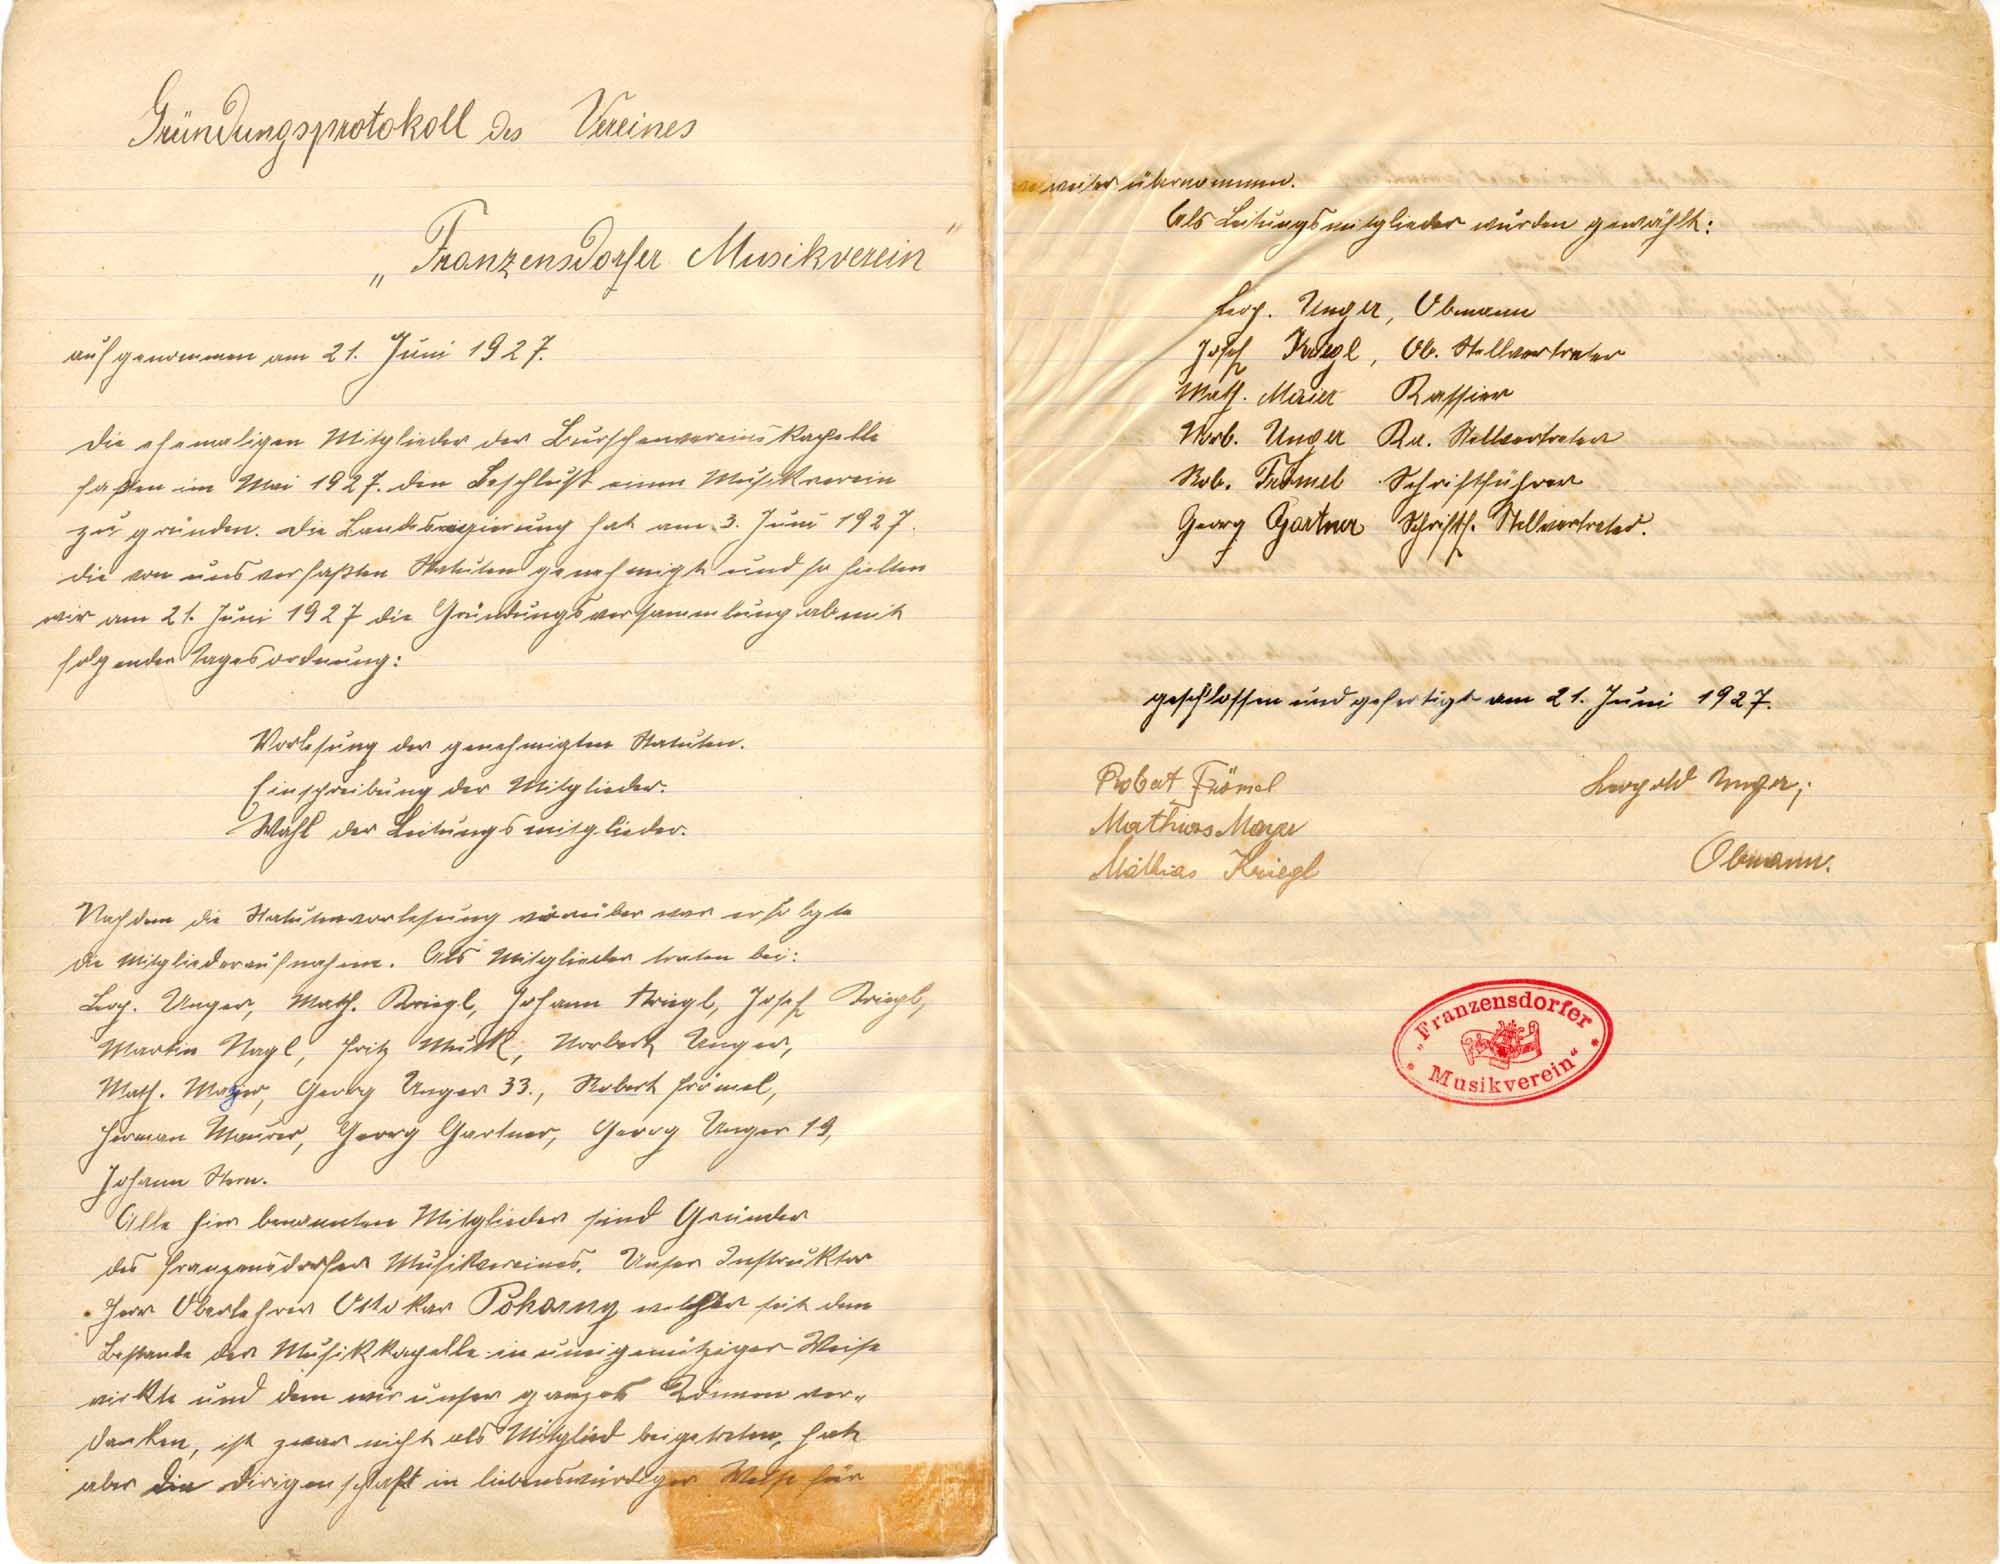 Gründungsprotokoll des Vereines
„Franzensdorfer Musikverein"
aufgenommen am 21. Juni 1927.
Die ehemaligen Mitglieder der Burschenvereinskapelle
faßten im Mai 1927. den Beschluß einen Musikverein
zu gründen. Die Landesregierung hat am 3. Juni 1927.
die von uns verfaßten Statuten genehmigt und so hielten
wir am 21. Juni 1927 die Gründungsversammlung ab mit
folgender Tagesordnung:
Vorlesung der genehmigten Statuten.
Einschreibung der Mitglieder.
Wahl der Leitungsmitglieder.
Nachdem die Statutenvorlesung vorüber war erfolgte
die Mitgliederaufnahme. Als Mitglieder traten bei:
Leop. Unger, Math. Kriegl, Johann Kriegl, Josef Kriegl,
Martin Nagl, Fritz Muck, Norbert Unger,
Math. Mayer, Georg Unger 33., Robert Frömel,
Herman Maurer, Georg Gartner, Georg Unger 19,
Johann Stern.
Alle hier benannten Mitglieder sind Gründer
des Franzensdorfer Musikvereines. Unser Instruktor
Herr Oberlehrer Ottokar Pokorny welcher seit dem
Bestande der Musikkapelle in uneigennütziger Weise
wirkte und dem wir unser ganzes Können ver-
danken, ist zwar nicht als Mitglied beigetreten, hat
aber die Dirigenschaft in liebenswürdiger Weise für
weiter übernommen.
Als Leitungsmitglieder wurden gewählt:
Leop. Unger, Obmann
Josef Kriegl, Ob. Stellvertreter
Math. Maier Kassier
Norb. Unger Ka. Stellvertreter
Rob. Frömel Schriftführer
Georg Gartner Schriftf. Stellvertreter.
geschlossen und gefertigt am 21. Juni 1927.
Robert Frömel Leopold Unger;
Mathias Mayer
Mathias Kriegl Obmann.
„Franzensdorfer
Musikverein"